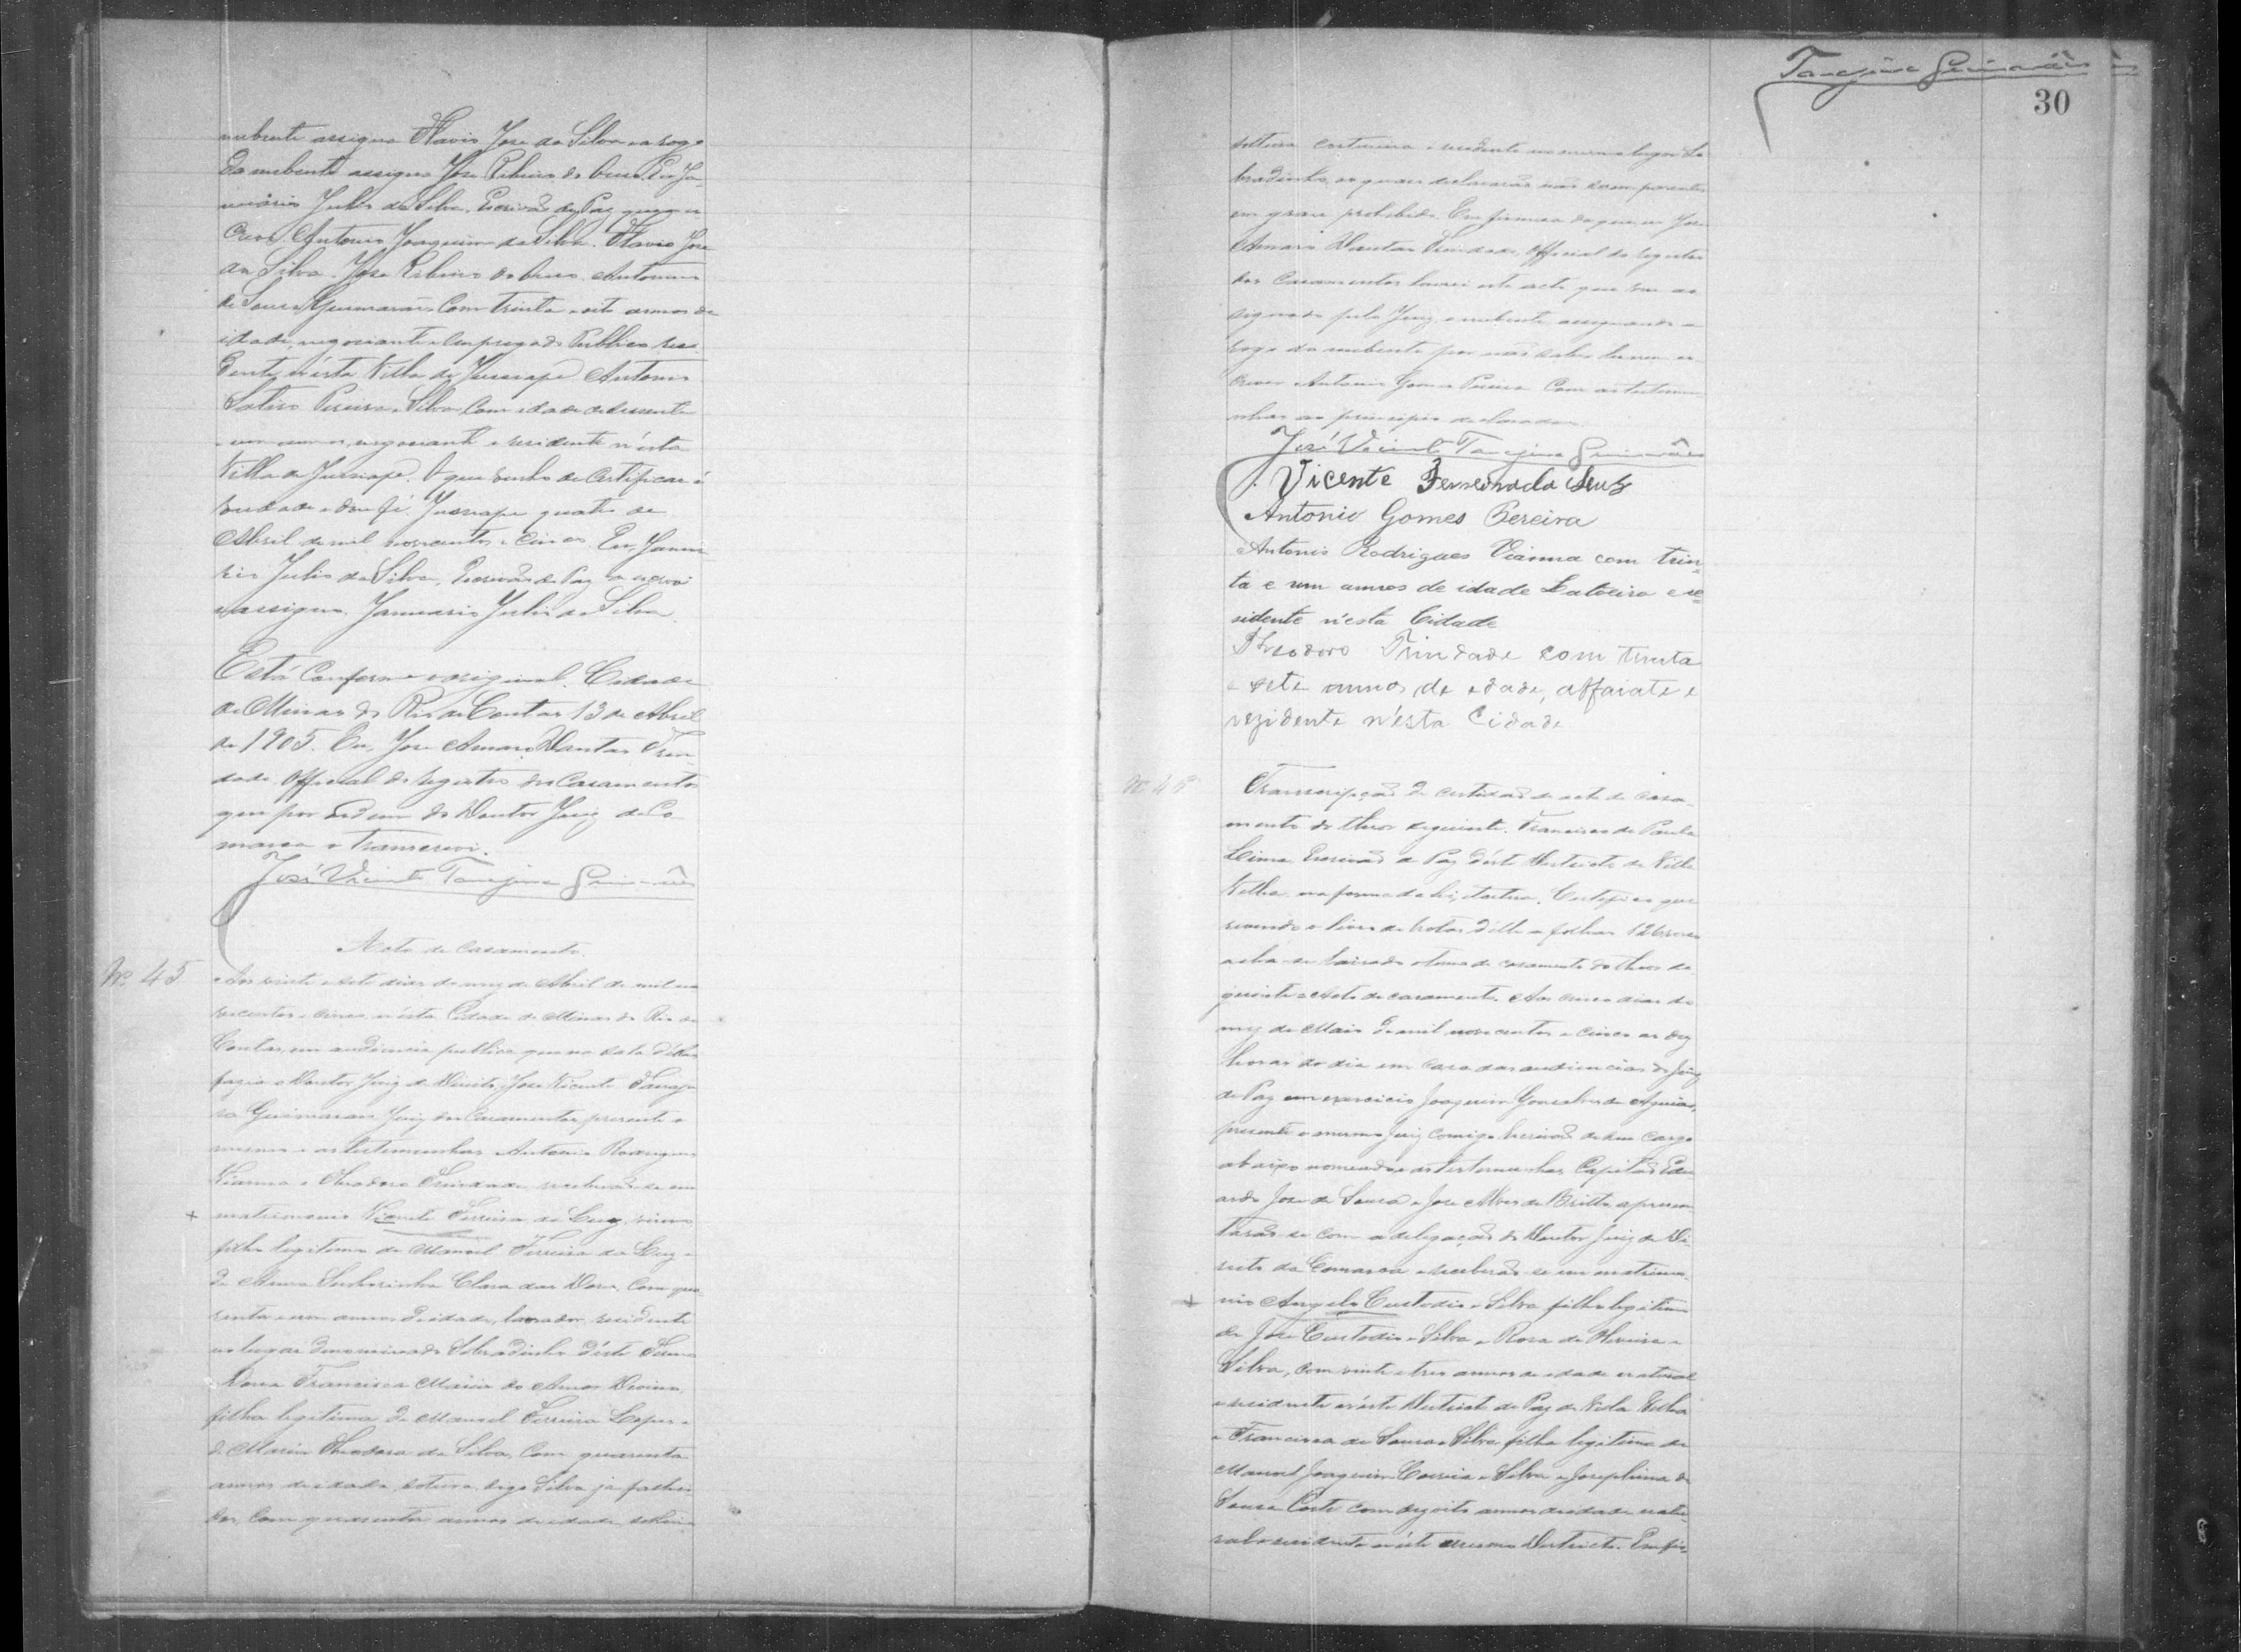 nubente assigno Flavio Jose da Silva a rogo
da nubente assigno Jose Ribeiro da Eu Ja-
nuario Julio da Silva, Escrivão de Paz que o es-
crevi. Antonio Joaquim da Silva. Flavio Jose
da Silva. Jose Ribeiro da Antonio
de Souza Guimarães com trinta e oito annos de
idade, negociante e empregado Publico resi-
dente n'esta Villa de Jussiape Antonio
Satiro Pereira e Silva com idade de sessenta
e um annos, negociante e residente n'esta
Villa de Jussiape. O que venho de certificar é
verdade e dou fé. Jussiape quatro de
Abril de mil novecentos e cinco. Eu, Janua-
rio Julio da Silva, Escrivão de Paz o escrevi
e assigno. Januario Julio da Silva.
Está conforme o original. Cidade
de Minas do Rio de Contas 13 de Abril
de 1905. Eu, Jose Amaro Dantas Trin-
dade Official do registro dos Casamentos
que por ordem do Doutor Juiz de Co-
marca o transcrevi.
José Vicente Tanajura Guimarães
Acto de casamento.
Nº 45
Aos vinte e sete dias do mez de Abril de mil no-
vecentos e cinco, n'esta Cidade de Minas do Rio de
Contas, em audiencia publica que na sala d'ellas
fazia o Doutor Juiz de Direito, Jose Vicente Tanaju-
ra Guimaraes Juiz dos Casamentos, presente o
mesmo e as testemunhas Antonio Rodrigues
Vianna e Theodoro Trindade, receberão-se em
matrimonio Vicente Ferreira da Luz, viuvo
filho legitimo de Manoel Ferreira da Luz e
de Anna Senhorinha Clara das Dores, com qua-
renta e um annos de idade, lavrador, residente
no lugar denominado Sobradinho d'este Termo
Dona Francisca Maria do Amor Divino,
filha legitima de Manoel Ferreira Lopes e
de Maria Theodora da Silva, com quarenta
annos de idade, solteira digo Silva, já falleci-
dos, com quarenta annos de idade, solteira
Tanajura Guimarães
30
solteira costureira e residente no mesmo lugar So-
bradinho, os quaes declararão não serem parentes
em grau prohibido. Em firmeza do que, eu Jose
Amaro Dantas Trindade, Official do registro
dos Casamentos lavrei este acto que vae as-
signado pelo Juiz, e nubente, assignando a
rogo da nubente por não saber ler nem es-
crever Antonio Gomes Pereira com as testemu-
nhas ao principio declaradas.
José Vicente Tanajura Guimarães
Vicente da Luz
Antonio Gomes Pereira
Antonio Rodrigues Vianna com trin-
ta e um annos de idade Latoeiro e re-
sidente n'esta Cidade
Theodoro Trindade com trinta
e sete annos de edade, alfaiate e
rezidente n'esta Cidade
Nº 46
Transcripção de certidão do acto de casa-
mento do theor seguinte. Francisco de Paula
Lima Escrivão de Paz d'este Districto de Villa
Velha na forma da lei, etc. Certifico que
revendo o livro de notas d'elle a folhas 126 verso
acha-se lavrado o termo de casamento do theor se-
guinte = Acto de casamento. Aos cinco dias do
mez de Maio de mil novecentos e cinco as dez
horas do dia em casa das audiencias do Juiz
de Paz em exercicio Joaquim Gonsalves de Aguiar,
presente o mesmo Juiz comigo Escrivão de seu cargo
abaixo nomeado e as testemunhas Capitão Edu-
ardo Jose de Souza e Jose Alves de Britto, apresen-
tarão-se com a delegação do Doutor Juiz de Di-
reito da Comarca e receberão-se em matrimo-
nio Angelo Custodio e Silva filho legitimo
de Jose Custodio e Silva e Rosa de Oliveira e
Silva, com vinte e tres annos de edade natural
e residente n'este Districto de Paz de Villa Velha
e Francisca de Souza e Silva filha legitima de
Manoel Joaquim Correia e Silva e Josephina de
Souza Costa com dezoito annos de idade natu-
ral e residente n'este mesmo Districto. Em fir-